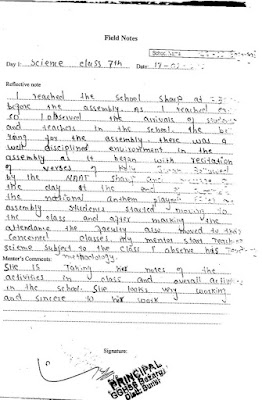 Field Notes
School Name
Day 1: Science class 7th Date: 17-02-
Reflective note
I reached the school sharp at
before the assembly. As I reached
so I observed the arrivals of
and teachers in the school. The
rang for the assembly, there was a
well disciplined environment in the
assembly as it began with recitation
of verses of Holy Quran followed
by the NAAT sharif and
the day at the end of
the national anthem played
assembly students started moving
the class and after marking the
attendance the faculty also moved to their
concerned classes. My mentor start teaching
science subject to the class I observe his
methodology.
Mentor's Comments:
She is taking her notes of the
activities in class and overall
in the school. She looks very working
and sincere to her work
Signature:
PRINCIPAL